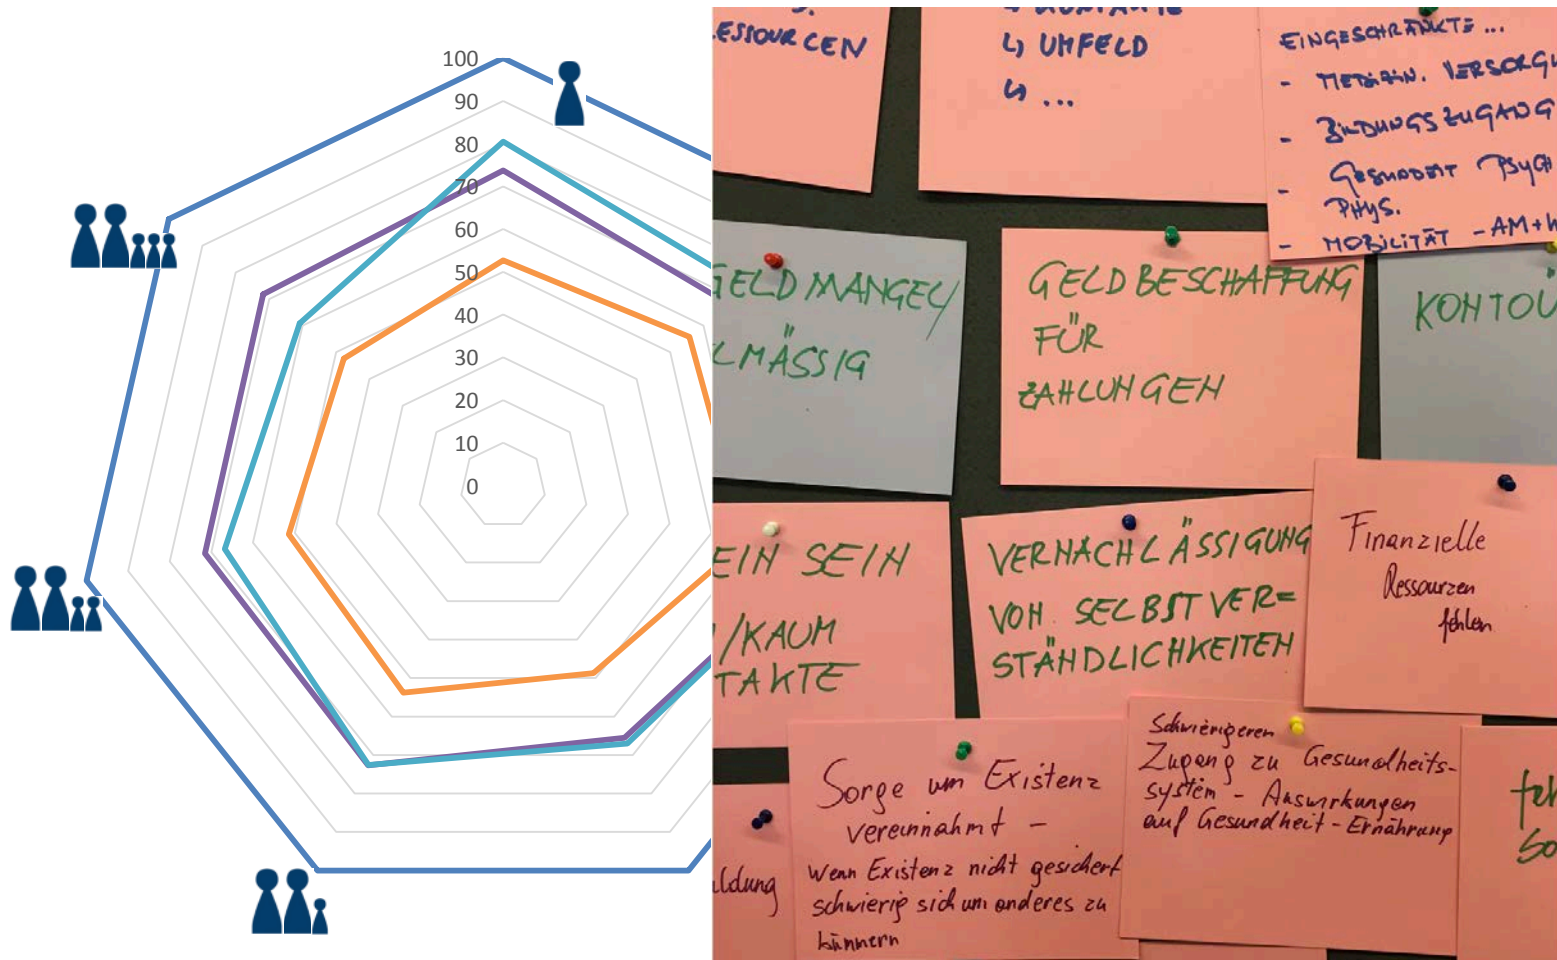 100
90
80
70
60
50
40
30
20
10
0
ESSOURCEN
↳ UMFELD
↳ ...
EINGESCHRÄNKTE ...
- MEDIZIN. VERSORGU
- BILDUNGSZUGANG
- GESUNDHEIT PSYCH
PHYS.
- MOBILITÄT - AM+W
GELDMANGEL/
LMÄSSIG
GELDBESCHAFFUNG
FÜR
ZAHLUNGEN
KONTOÜ
EIN SEIN
/KAUM
TAKTE
VERNACHLÄSSIGUNG
VON SELBSTVER=
STÄNDLICHKEITEN
Finanzielle
Ressourzen
fehlen
ldung
Sorge um Existenz
vereinnahmt -
Wenn Existenz nicht gesichert
schwierig sich um anderes zu
kümmern
Schwierigeren
Zugang zu Gesundheits-
system - Auswirkungen
auf Gesundheit - Ernährung
feh
So